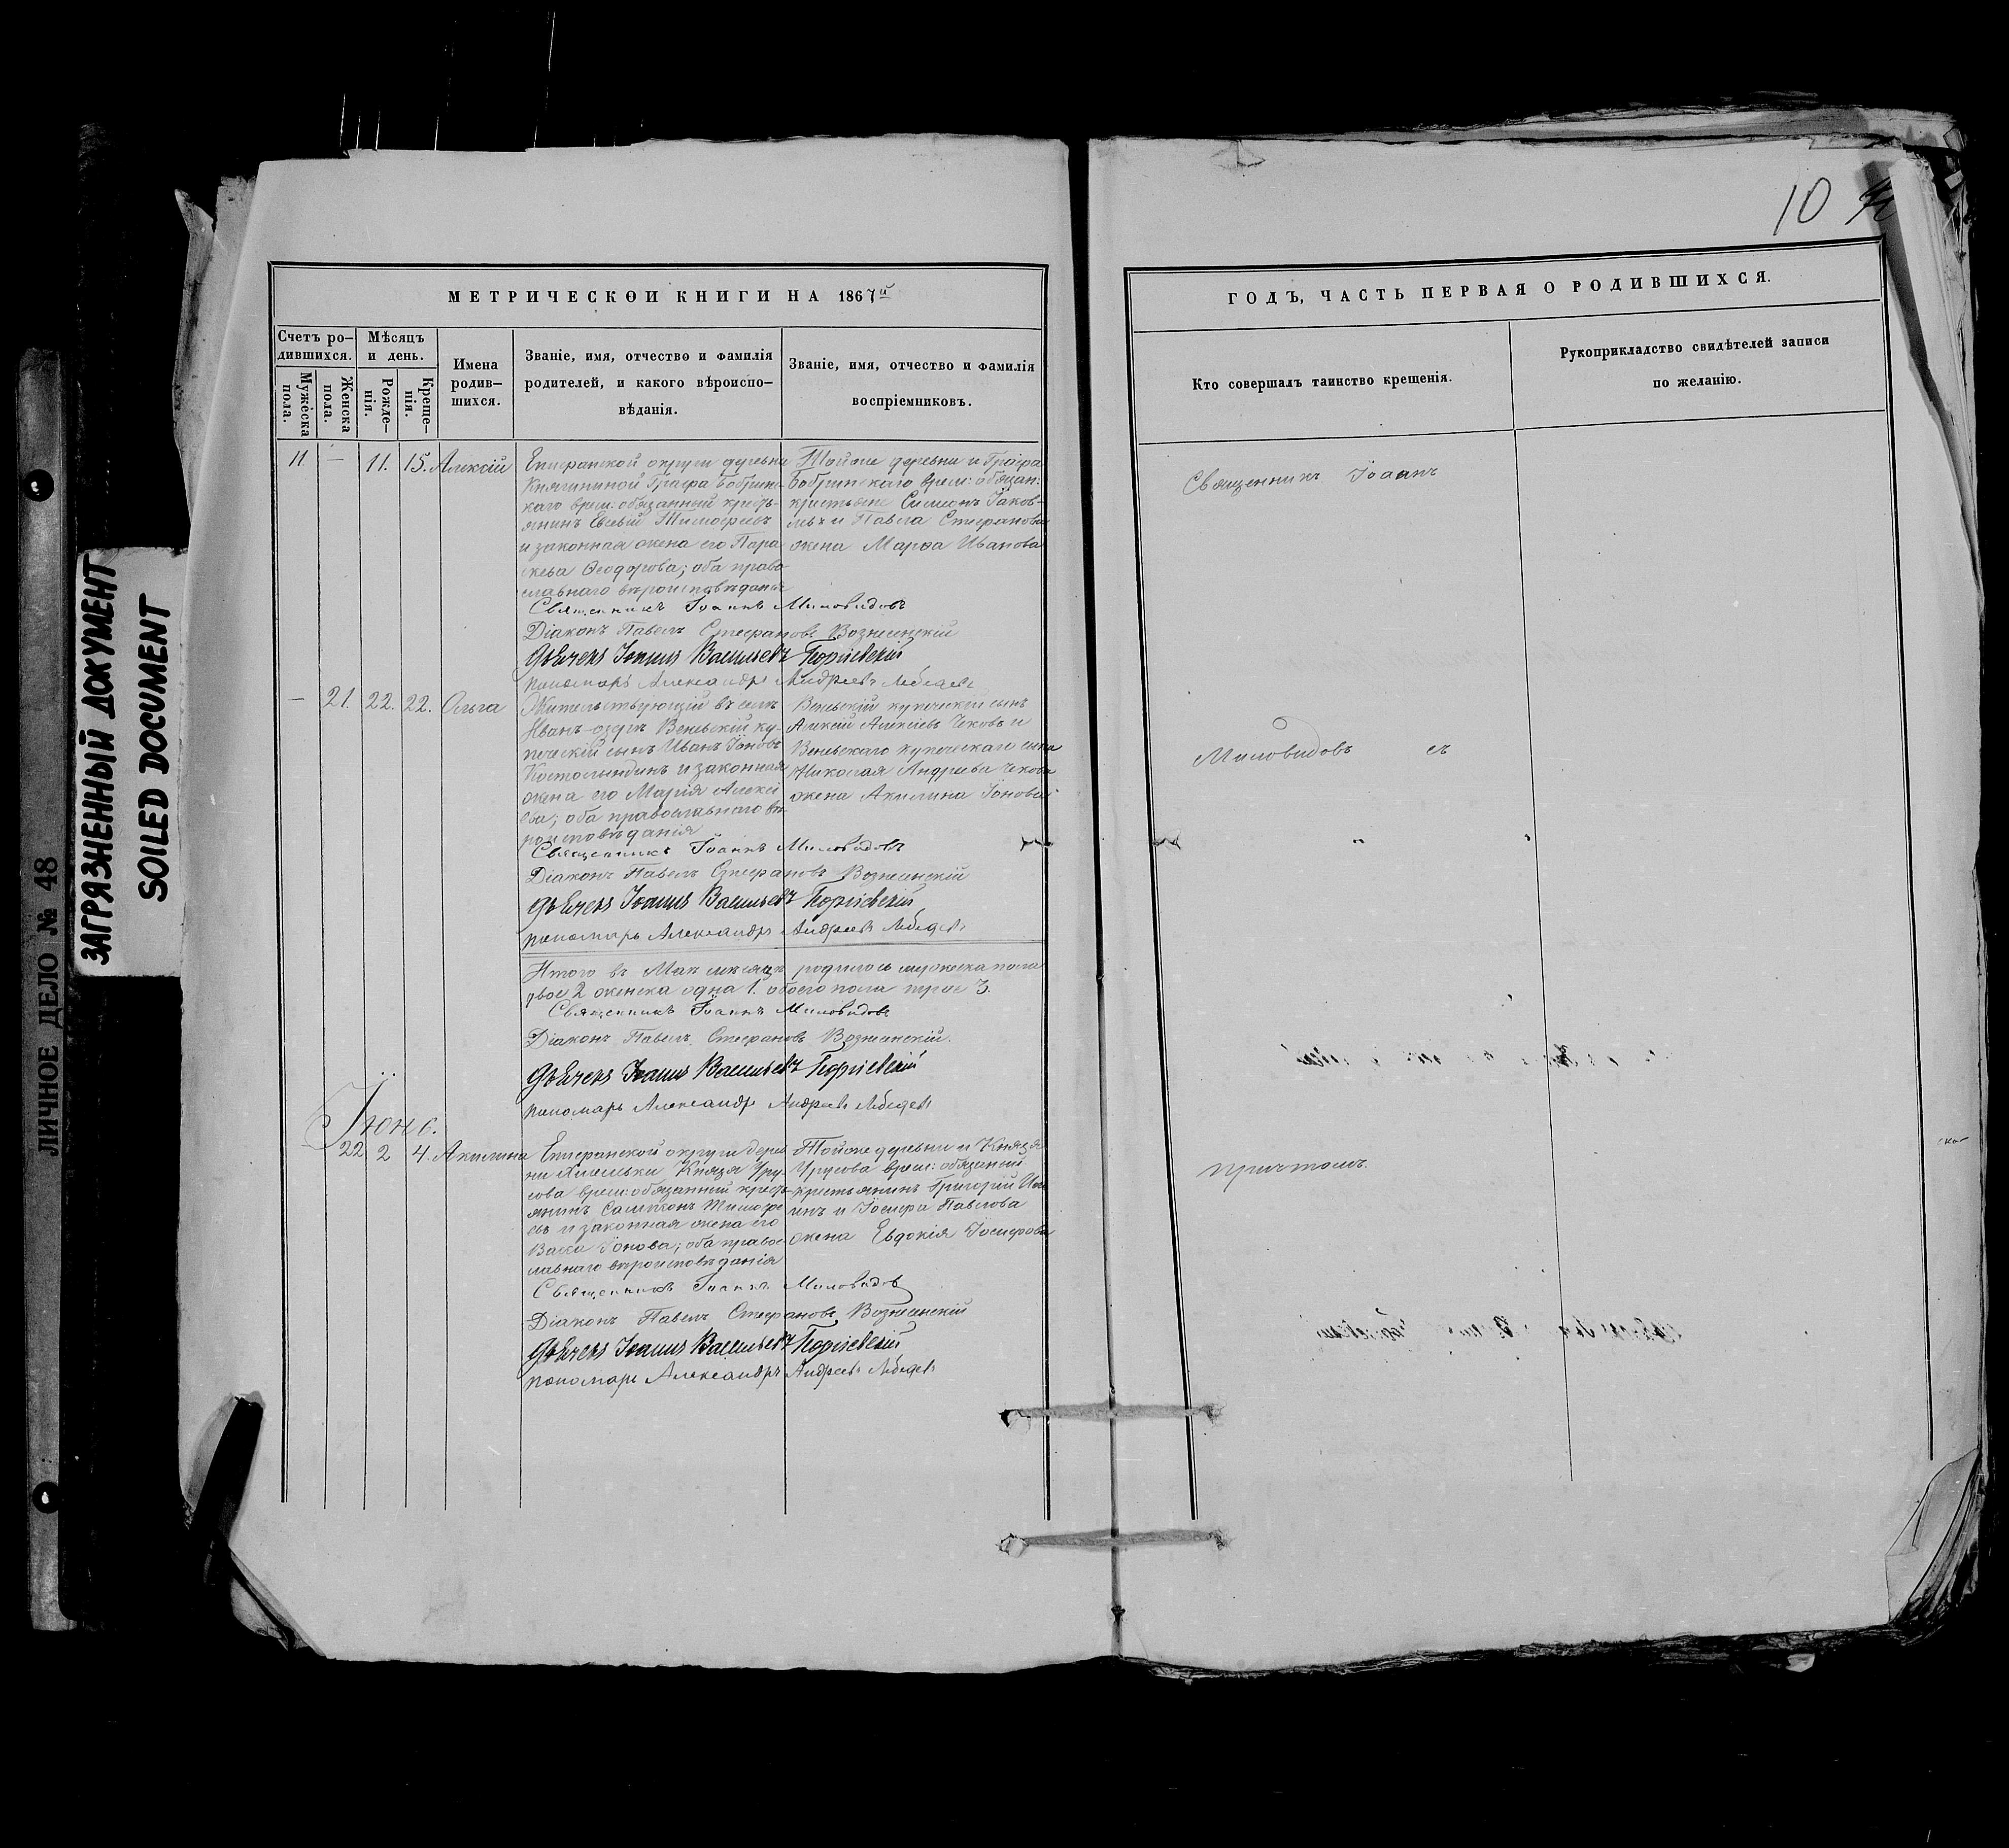 10
МЕТРИЧЕСКѲИ КНИГИ НА 1867й
Счетъ ро-
дившихся.
Мужеска
пола.
Женска
пола.
Мѣсяцъ
и день.
Рожде-
нія.
Креще-
нія.
Имена
родив-
шихся.
Званіе, имя, отчество и фамилія
родителей, и какого вѣроиспо-
вѣданія.
Званіе, имя, отчество и фамилія
воспріемниковъ.
11 — 11. 15. Алексій
Епифанской округи деревни
Княгининой Графа Бобринс-
каго врем: обязанный кресть-
янинъ Евсевій Тимофеевъ
и законная жена его Пара-
скева Ѳеодорова; оба право
славнаго вѣроисповѣданія
Тойже деревни и Графа
Бобринскаго врем: обязан:
крестьяне Симеонъ Іаков-
левъ и Павла Стефанова
жена Марѳа Иванова
Священникъ Іоаннъ Миловидовъ
Діаконъ Павелъ Стефановъ Вознесенскій
Дьячекъ Іоаннъ Васильевъ
пономарь Александръ Андреевъ Лебедевъ
— 21. 22. 22. Ольга
Жительствующій въ селѣ
Иванъ-озерѣ Веневскій ку-
печескій сынъ Иванъ Іоновъ
и законная
жена его Марія Алексѣ
ева; оба православнаго вѣ-
роисповѣданія
Веневскій купеческій сынъ
Алексій Алексіевъ Чековъ и
Веневскаго купеческаго сына
Николая Андреева Чекова
жена Акилина Іоновой
Священникъ Іоаннъ Миловидовъ
Діаконъ Павелъ Стефановъ Вознесенскій
Дьячекъ Іоаннъ Васильевъ
пономарь Александръ Андреевъ Лебедевъ
Итого въ Маѣ мѣсяцѣ родилось мужеска пола
двое 2 женска одна 1. обоего пола трое 3.
Священникъ Іоаннъ Миловидовъ
Діаконъ Павелъ Стефановъ Вознесенскій.
Дьячекъ Іоаннъ Васильевъ
пономарь Александръ Андреевъ Лебедевъ
Іюнь.
22 2 4. Акилина
Епифанской округи дерев
ни Князя Уру-
сова врем: обязанный кресть-
янинъ Сампсонъ Тимофе
евъ и законная жена его
Васса Іонова; оба право-
славнаго вѣроисповѣданія
Тойже деревни и Князя
Урусова врем: обязаный
крестьянинъ Григорій
и Іосифа Павлова
жена Евдокія Іосифова
Священникъ Іоаннъ Миловидовъ
Діаконъ Павелъ Стефановъ Вознесенскій
Дьячекъ Іоаннъ Васильевъ
пономарь Александръ Андреевъ Лебедевъ
ГОДЪ, ЧАСТЬ ПЕРВАЯ О РОДИВШИХСЯ.
Кто совершалъ таинство крещенія.
Рукоприкладство свидѣтелей записи
по желанію.
Священникъ Іоаннъ
Миловидовъ съ
причтомъ.
ЗАГРЯЗНЕННЫЙ ДОКУМЕНТ
SOILED DOCUMENT
ЛИЧНОЕ ДЕЛО № 48